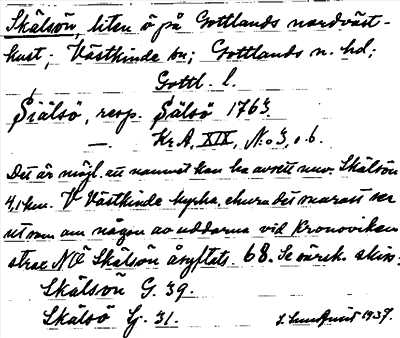 Skälsön, liten ö på Gottlands nordväst-
kust; Västkinde sn; Gottlands n. hd;
Gottl. l.
Siälsö, resp. Sälsö 1763.
— Kr.A, XIX, No 3, o. 6.
Det är möjl. att namnet kan ha avsett nuv. Skälsön
4,1 km. V Västkinde kyrka, ehuru det snarast ser
ut som om någon av uddarna vid Kronoviken
strax NO Skälsön åsyftats. 68. Se särsk. skiss.
Skälsön G. 39.
Skälsö Gj. 31.
S. Lundquist 1939.